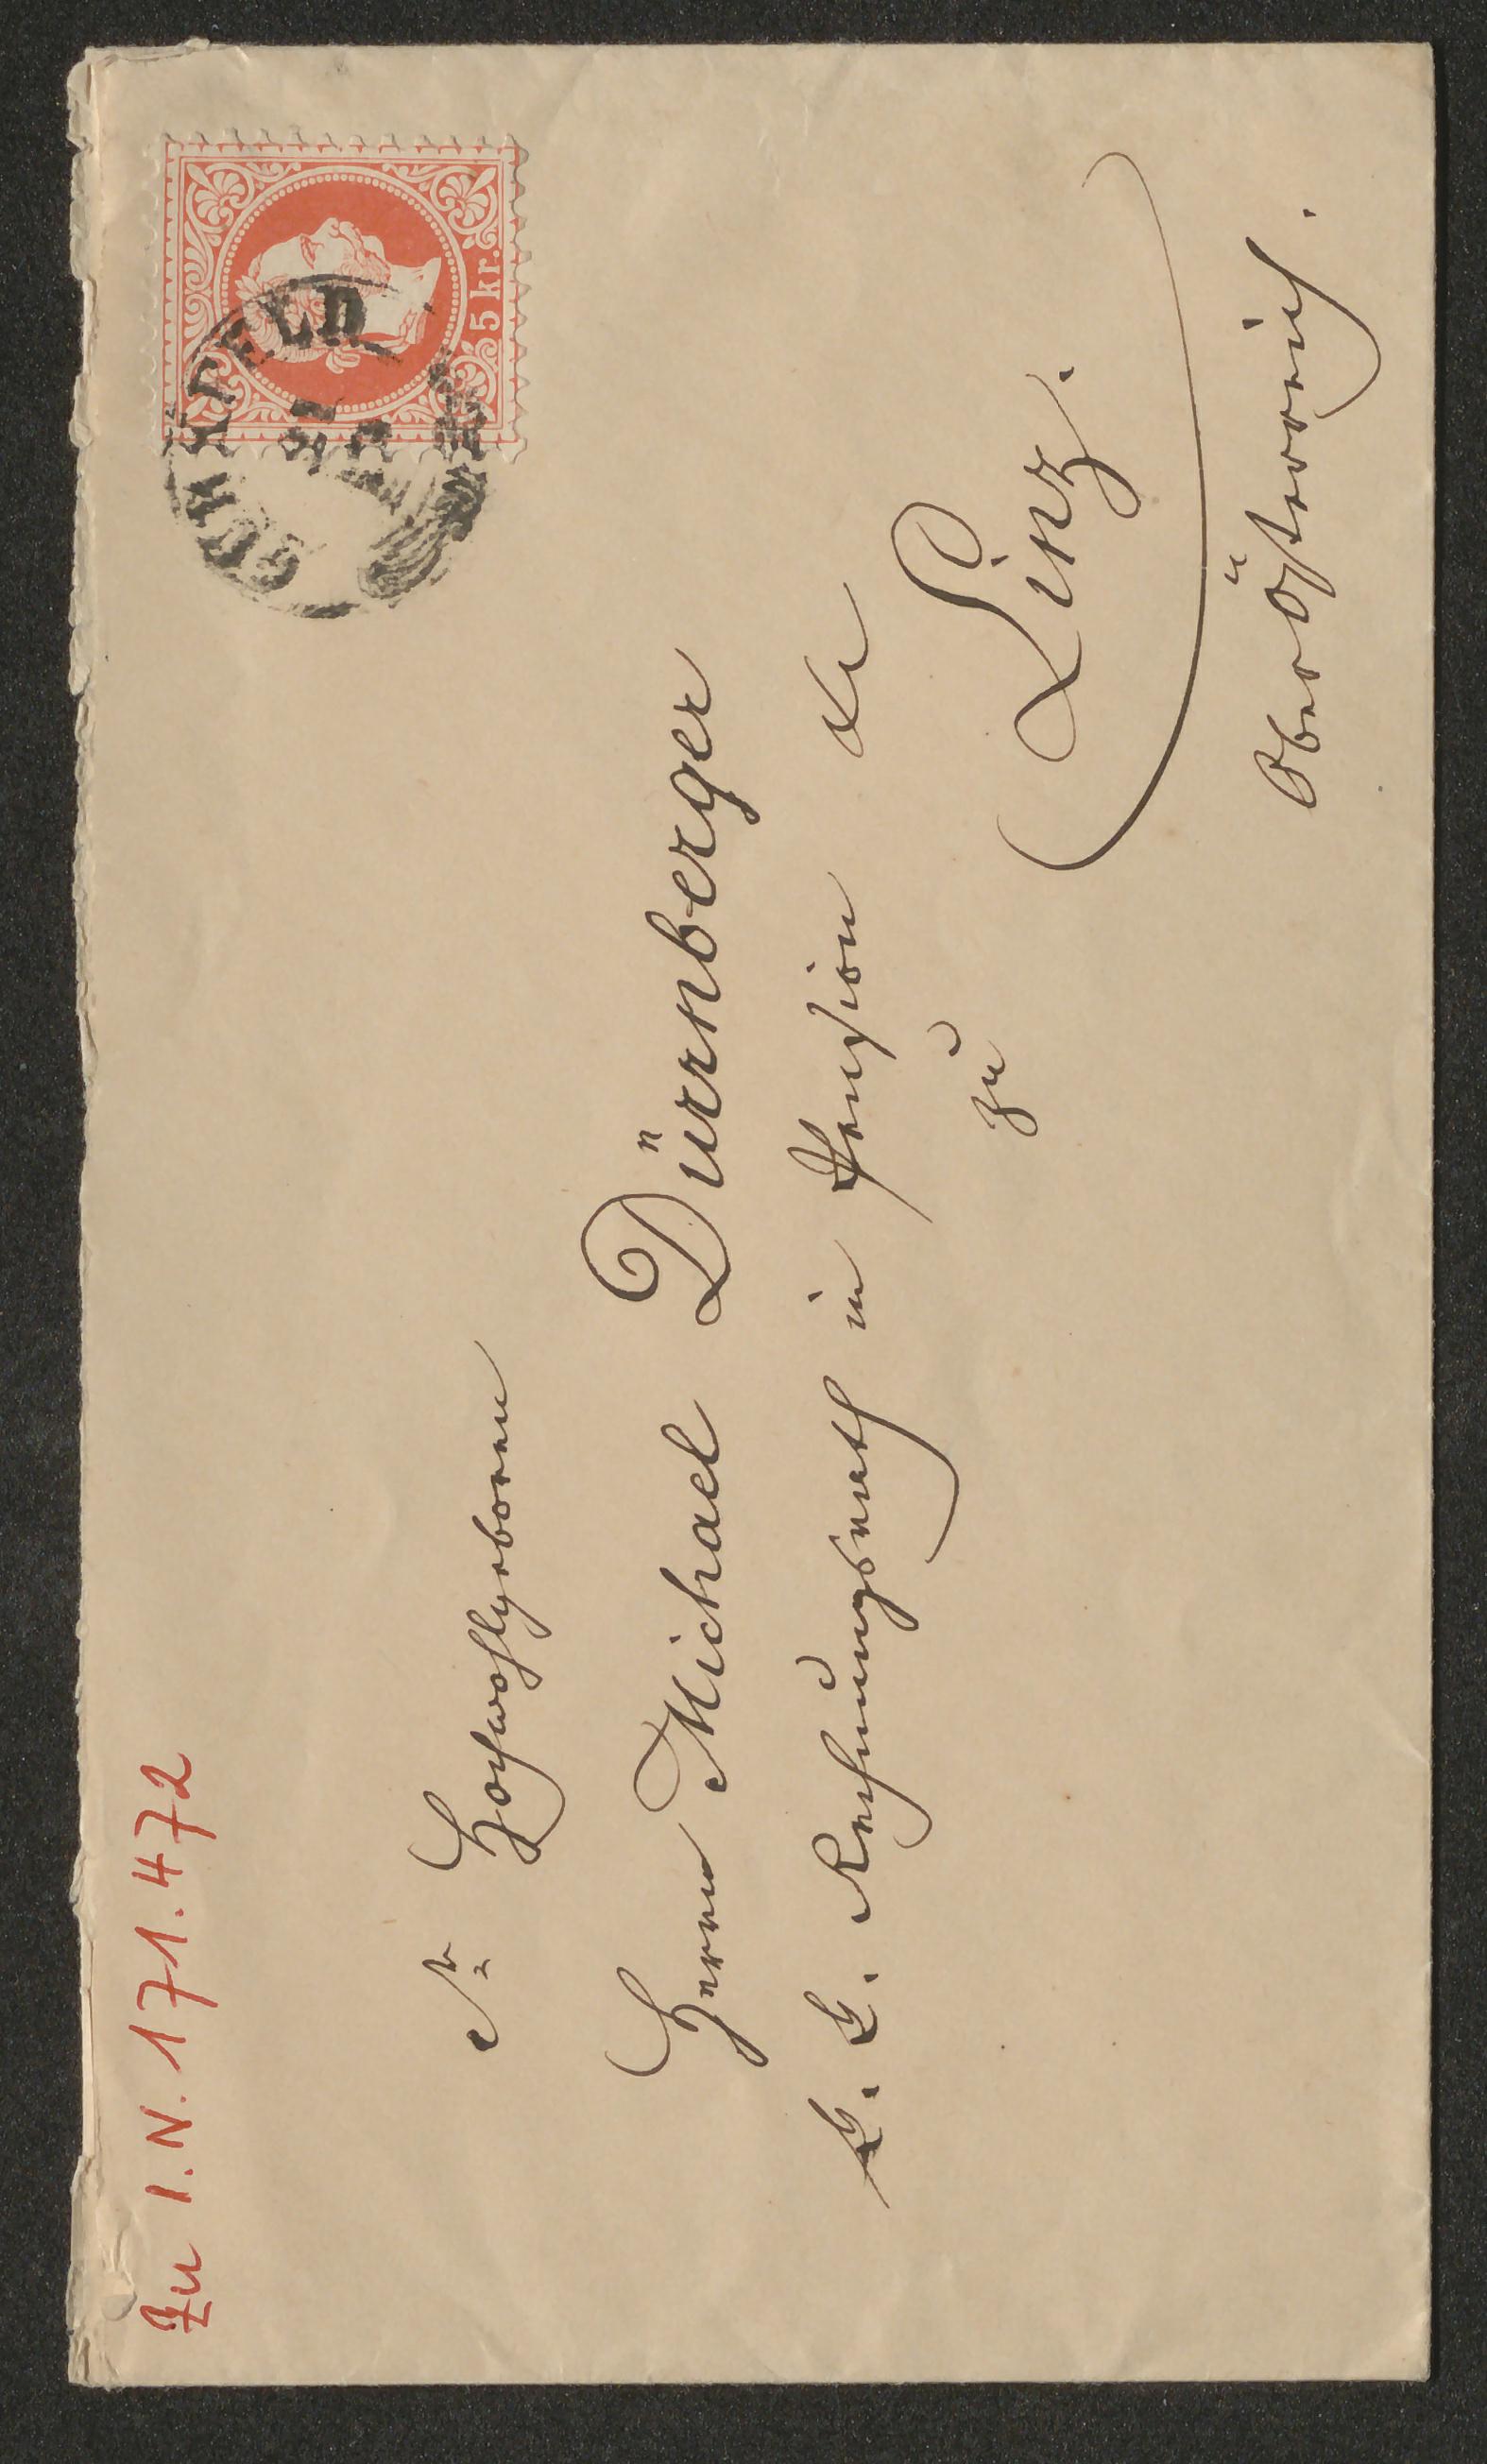 Zu I.N. 171.472
5 kr.
GURKFELD
21
Sr Hochwohlgeboren
Herrn Michael Dürrnberger
k. k. Rechnungsrath in Pension &c
zu
Linz.
OberÖsterreich.